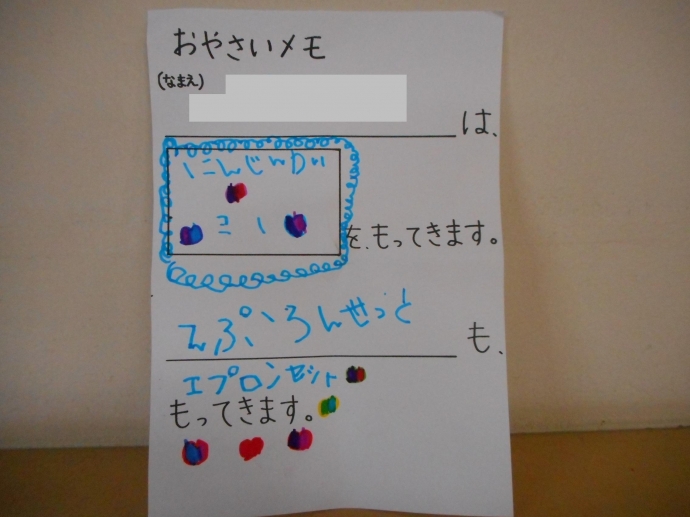 おやさいメモ
(なまえ)
は、
にんじんカい
こ い
を、もってきます。
えぷろんせっと
も、
エプロンセット
もってきます。